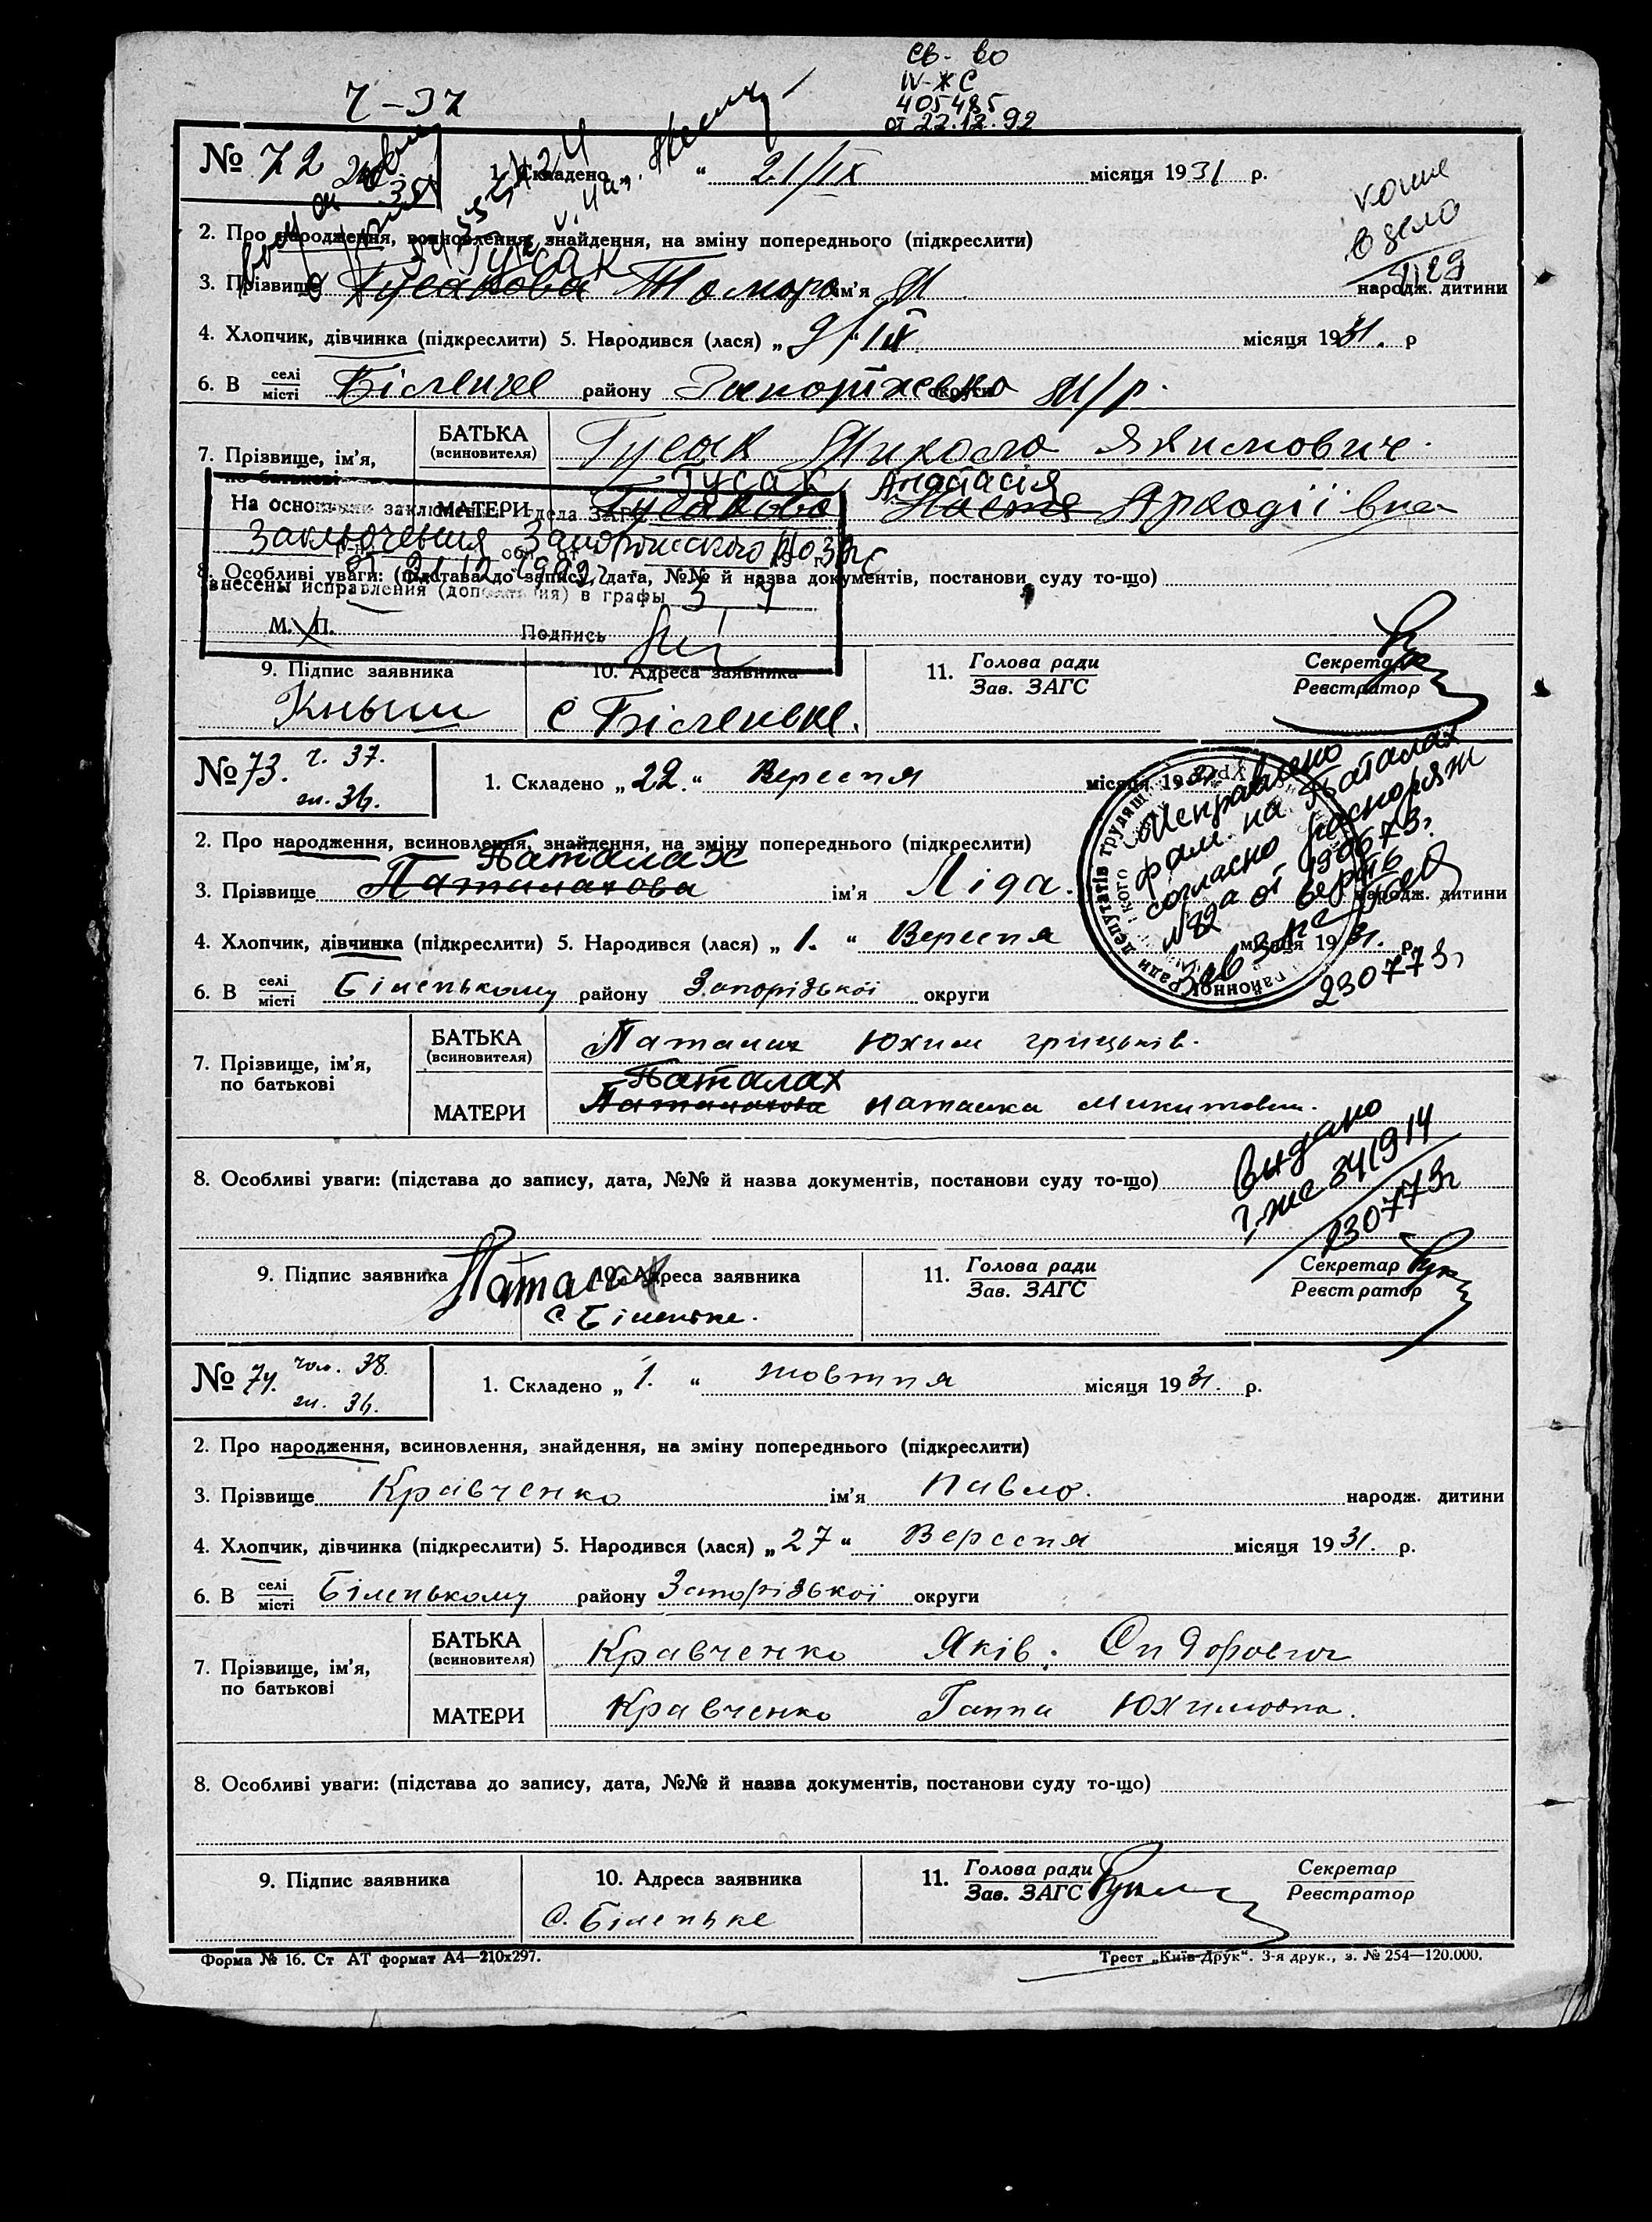 св-во
IV-ЖС
405485
от 22.12.92
№ 72
1. Складено „ 21/IX місяця 1931 р.
копие
в дело
1129
2. Про народження, всиновлення, знайдення, на зміну попереднього (підкреслити)
Гусак
3. Прізвище Гусакова Томара ім'я народж. дитини
4. Хлопчик, дівчинка (підкреслити) 5. Народився (лася) „ 9/IX місяця 1931. р
6. В селі/місті район округи
7. Прізвище, ім'я, по батькові
БАТЬКА (всиновителя) Гусак Микола Якимович.
Гусак Анастасія
МАТЕРИ Гусакова Настя Аркадіївна
На основании заключения отдела ЗАГС
Заключения Запорожского
от 21.12.1992г.
внесены исправления (дополнения) в графы 3 7
М. П. Подпись
8. Особливі уваги: (підстава до запису, дата, №№ й назва документів, постанови суду то-що)
9. Підпис заявника
10. Адреса заявника
11. Голова ради Зав. ЗАГС
Секретар Реєстратор
Кныш
с Біленьке.
№ 73. ч. 37.
ж. 36.
1. Складено „ 22. “ Вересня місяця 1931
2. Про народження, всиновлення, знайдення, на зміну попереднього (підкреслити)
Паталах
3. Прізвище Паталахова ім'я Ліда. народж. дитини
4. Хлопчик, дівчинка (підкреслити) 5. Народився (лася) „ 1. “ Вересня місяця 1931. р.
6. В селі/місті Біленькому району Запорізької округи
Исправлено
фам. на Паталах
согласно распоряж
№82а от 190673г.
230773г
7. Прізвище, ім'я, по батькові
БАТЬКА (всиновителя) Паталах Юхим Грицьків.
Паталах
МАТЕРИ Паталахова Наташка Микитовна.
8. Особливі уваги: (підстава до запису, дата, №№ й назва документів, постанови суду то-що)
Видано
341914
230773г
9. Підпис заявника
10. Адреса заявника
11. Голова ради Зав. ЗАГС
Секретар Реєстратор
Паталах
с. Біленьке.
№ 74. чол. 38.
ж. 36.
1. Складено „ 1. “ жовтня місяця 1931. р.
2. Про народження, всиновлення, знайдення, на зміну попереднього (підкреслити)
3. Прізвище Кравченко ім'я Павло. народж. дитини
4. Хлопчик, дівчинка (підкреслити) 5. Народився (лася) „ 27 “ Вересня місяця 1931. р.
6. В селі/місті Біленькому району Запорізької округи
7. Прізвище, ім'я, по батькові
БАТЬКА (всиновителя) Кравченко Яків. Сидорович
МАТЕРИ Кравченко Ганна Юхимовна.
8. Особливі уваги: (підстава до запису, дата, №№ й назва документів, постанови суду то-що)
9. Підпис заявника
10. Адреса заявника
11. Голова ради Зав. ЗАГС
Секретар Реєстратор
с. Біленьке
Форма № 16. Ст АТ формат А4—210х297.
Трест „Київ-Друк“. 3-я друк., з. № 254—120.000.